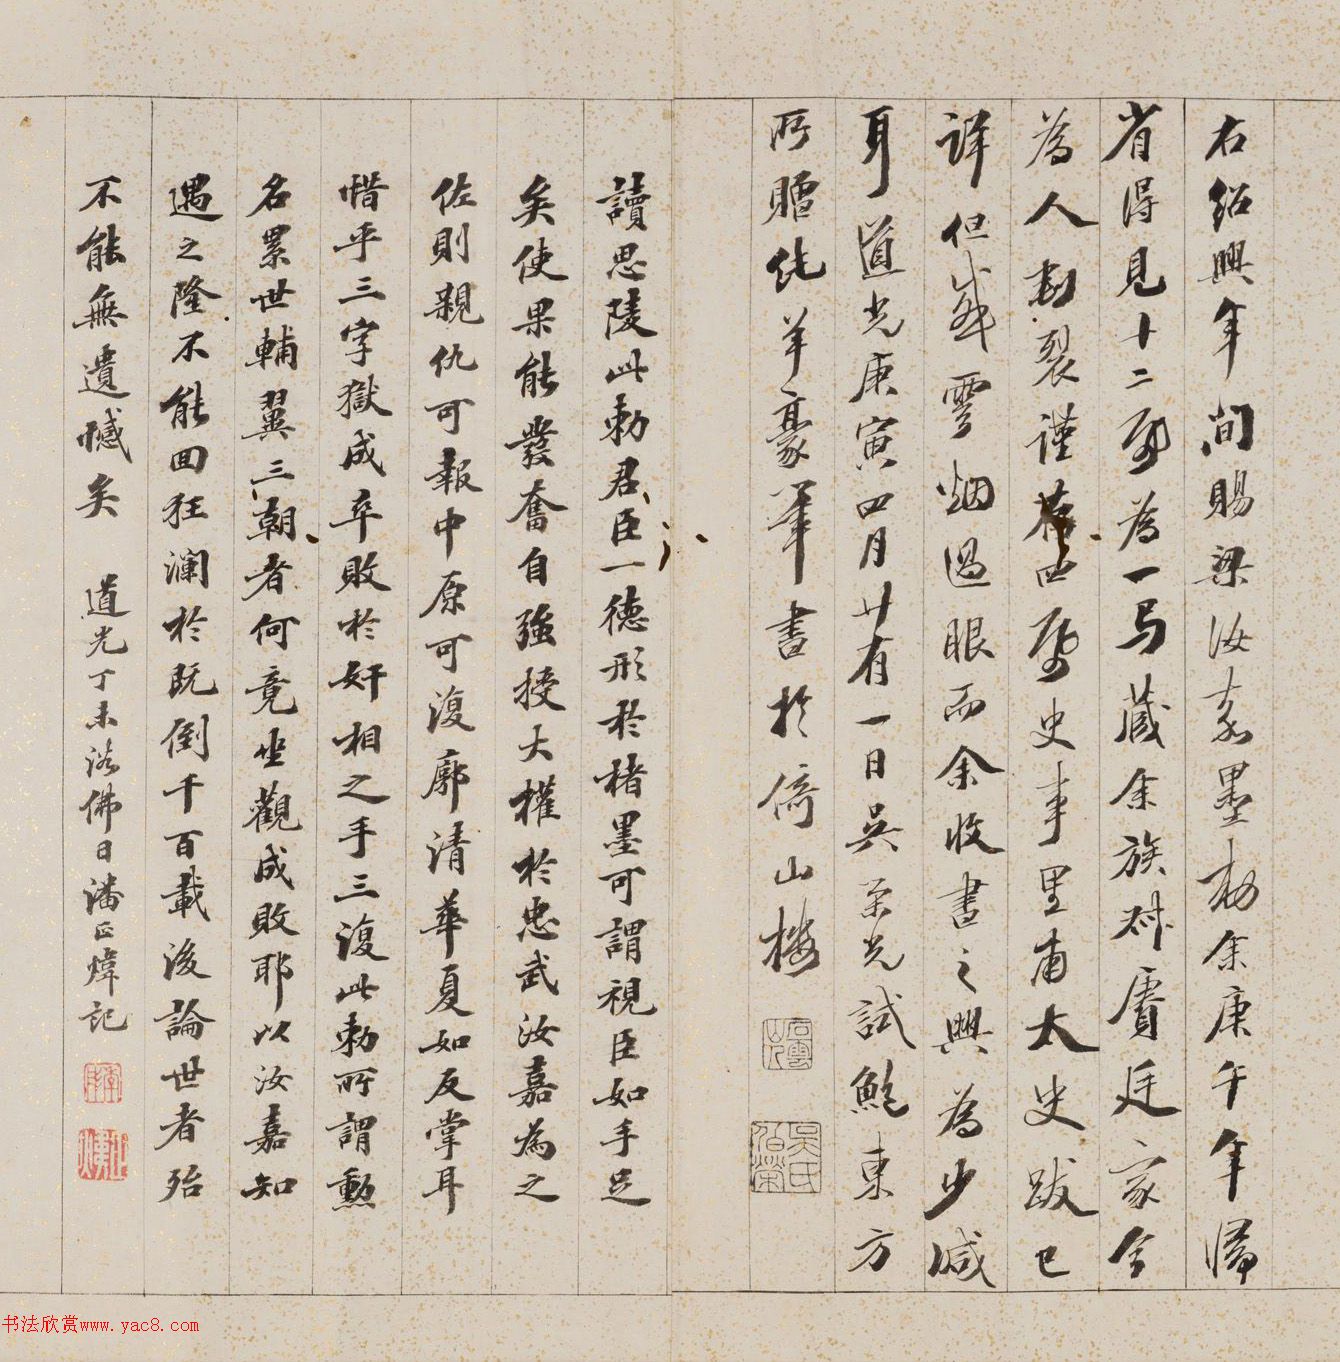 右紹興年間賜梁汝嘉墨勅余庚午年歸
省得見十二改為一易藏余族對賡廷家今
為人割裂謹存四改史事里甫太史跋已
詳但感雲烟過眼而余收書之興為少減
耳道光庚寅四月廿有一日吳榮光試鮑東方
所贈純羊豪筆書於倚山樓
石雲山人
吳氏伯榮
讀思陵此勅君臣一德形於楮墨可謂視臣如手足
矣使果能發奮自強授大權於忠武汝嘉為之
佐則親仇可報中原可復廓清華夏如反掌耳
惜乎三字獄成卒敗於奸相之手三復此勅所謂勲
名累世輔翼三朝者何竟坐觀成敗耶以汝嘉知
遇之隆不能回狂瀾於既倒千百載後論世者殆
不能無遺憾矣 道光丁未浴佛日潘正煒記
季彤
正煒
书法欣赏www.yac8.com